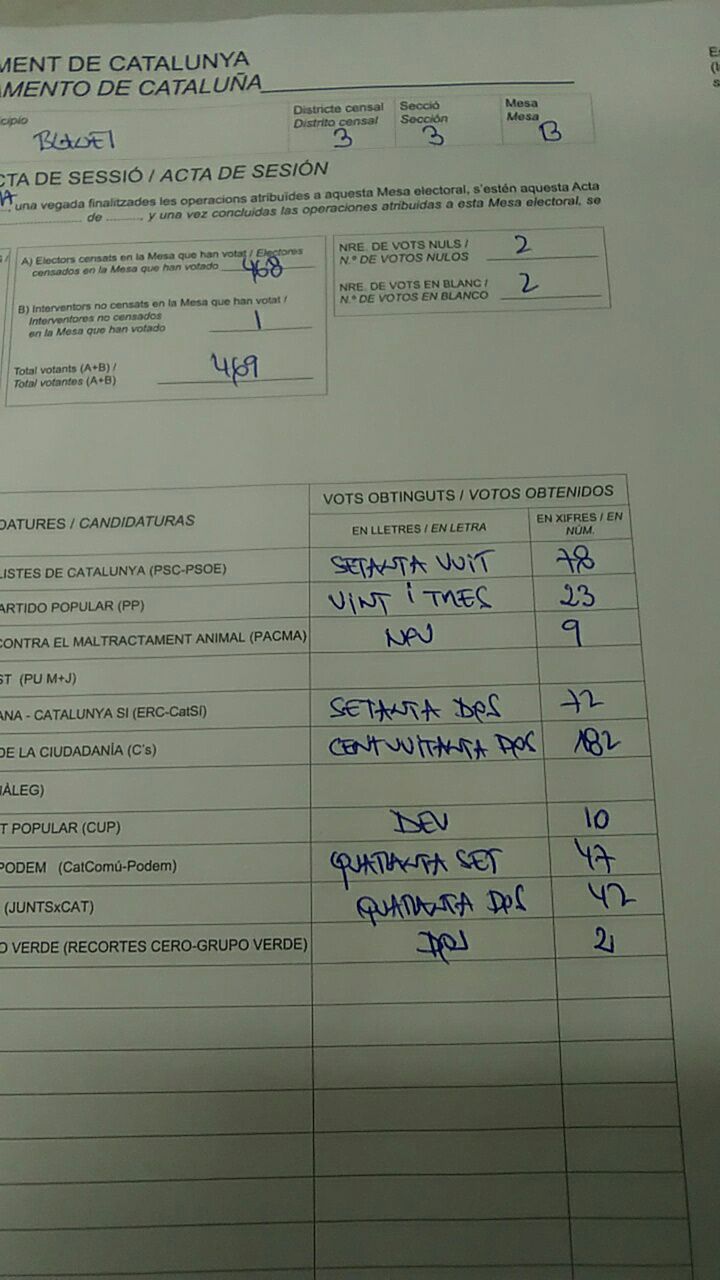 MENT DE CATALUNYA
AMENTO DE CATALUÑA
cipio
Districte censal
Distrito censal
3
Secció
Sección
3
Mesa
Mesa
B
CTA DE SESSIÓ / ACTA DE SESIÓN
, una vegada finalitzades les operacions atribuïdes a aquesta Mesa electoral, s'estén aquesta Acta
de ........, y una vez concluidas las operaciones atribuidas a esta Mesa electoral, se
A) Electors censats en la Mesa que han votat / Electores
censados en la Mesa que han votado 468
B) Interventors no censats en la Mesa que han votat /
Interventores no censados
en la Mesa que han votado 1
Total votants (A+B) /
Total votantes (A+B) 469
NRE. DE VOTS NULS /
N.º DE VOTOS NULOS 2
NRE. DE VOTS EN BLANC /
N.º DE VOTOS EN BLANCO 2
DATURES / CANDIDATURAS
VOTS OBTINGUTS / VOTOS OBTENIDOS
EN LLETRES / EN LETRA
EN XIFRES / EN
NÚM.
LISTES DE CATALUNYA (PSC-PSOE) SETANTA VUIT 78
ARTIDO POPULAR (PP) VINT I TRES 23
CONTRA EL MALTRACTAMENT ANIMAL (PACMA) NOU 9
ST (PU M+J)
ANA - CATALUNYA SI (ERC-CatSí) SETANTA DOS 72
DE LA CIUDADANÍA (C's) CENT VUITANTA DOS 182
IÀLEG)
T POPULAR (CUP) DEU 10
PODEM (CatComú-Podem) QUARANTA SET 47
(JUNTSxCAT) QUARANTA DOS 42
O VERDE (RECORTES CERO-GRUPO VERDE) DOS 2